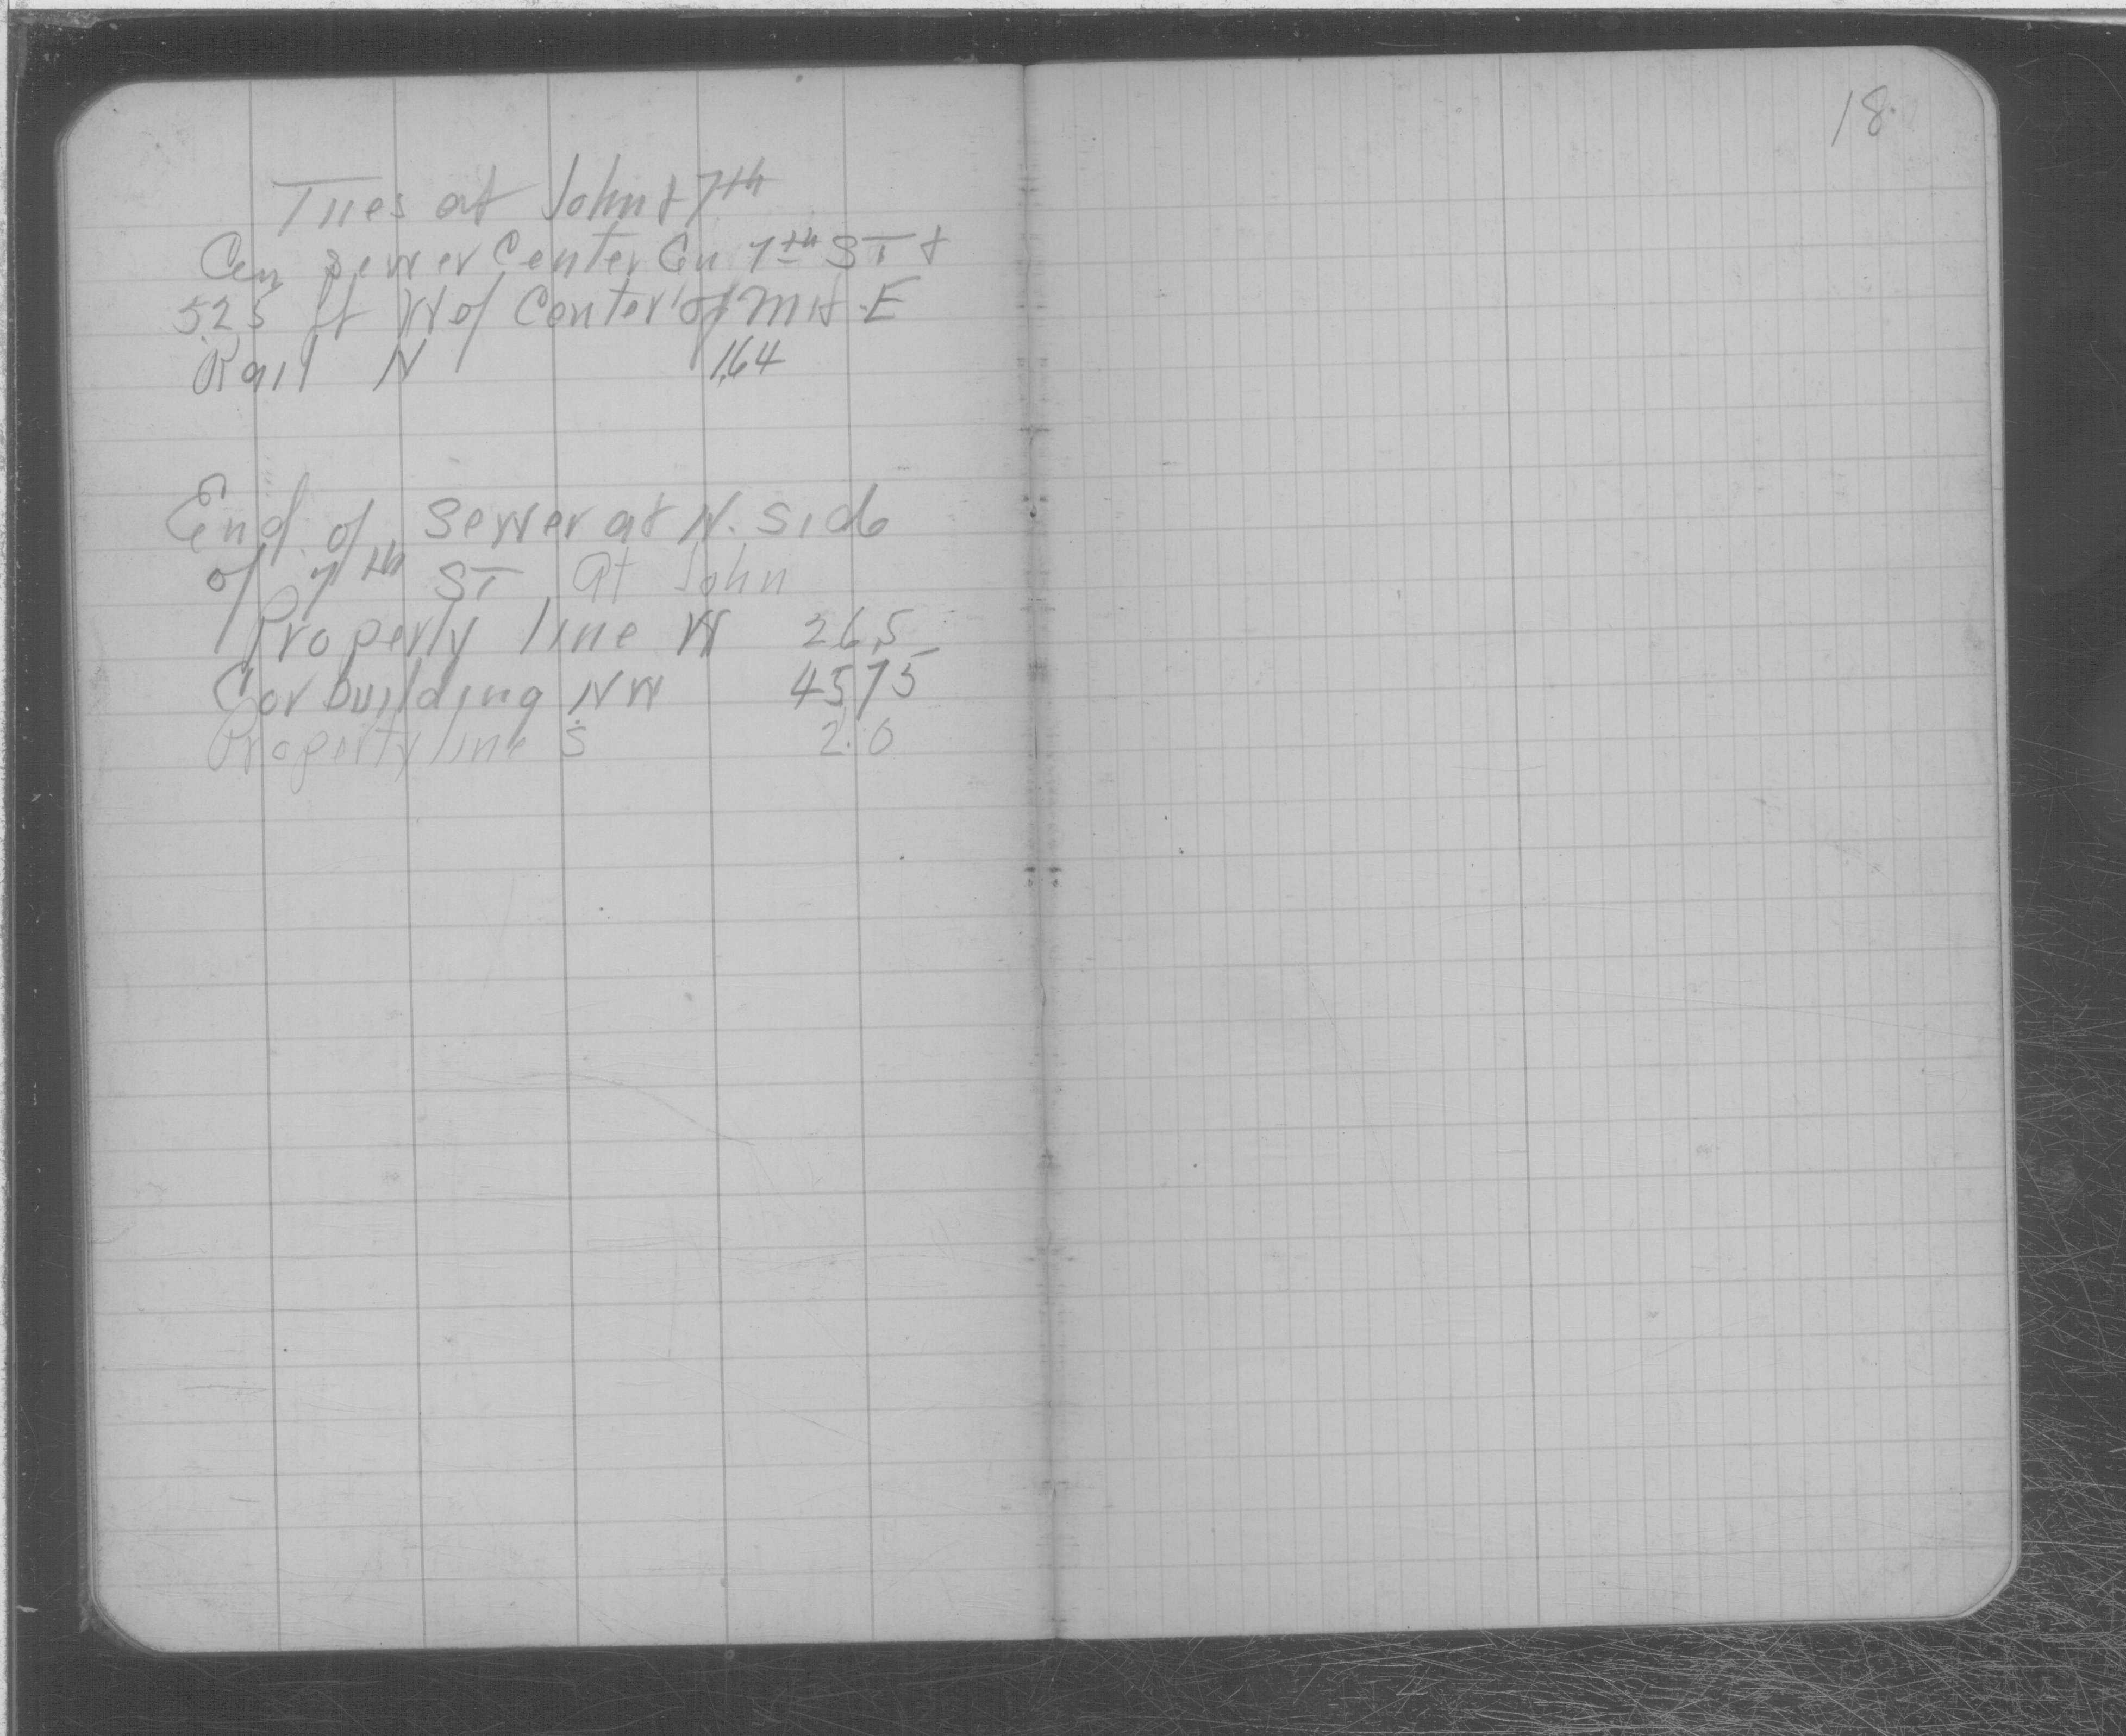 Tiies at John & 7th
Cen sewer Center Cen 7th ST &
5.25 ft W of Center of MH E
Rail N 1.64
End of Sewer at N. Side
of 7th ST at John
Property line W 26.5
Cor building NW 45.75
Property line S 2.0
18